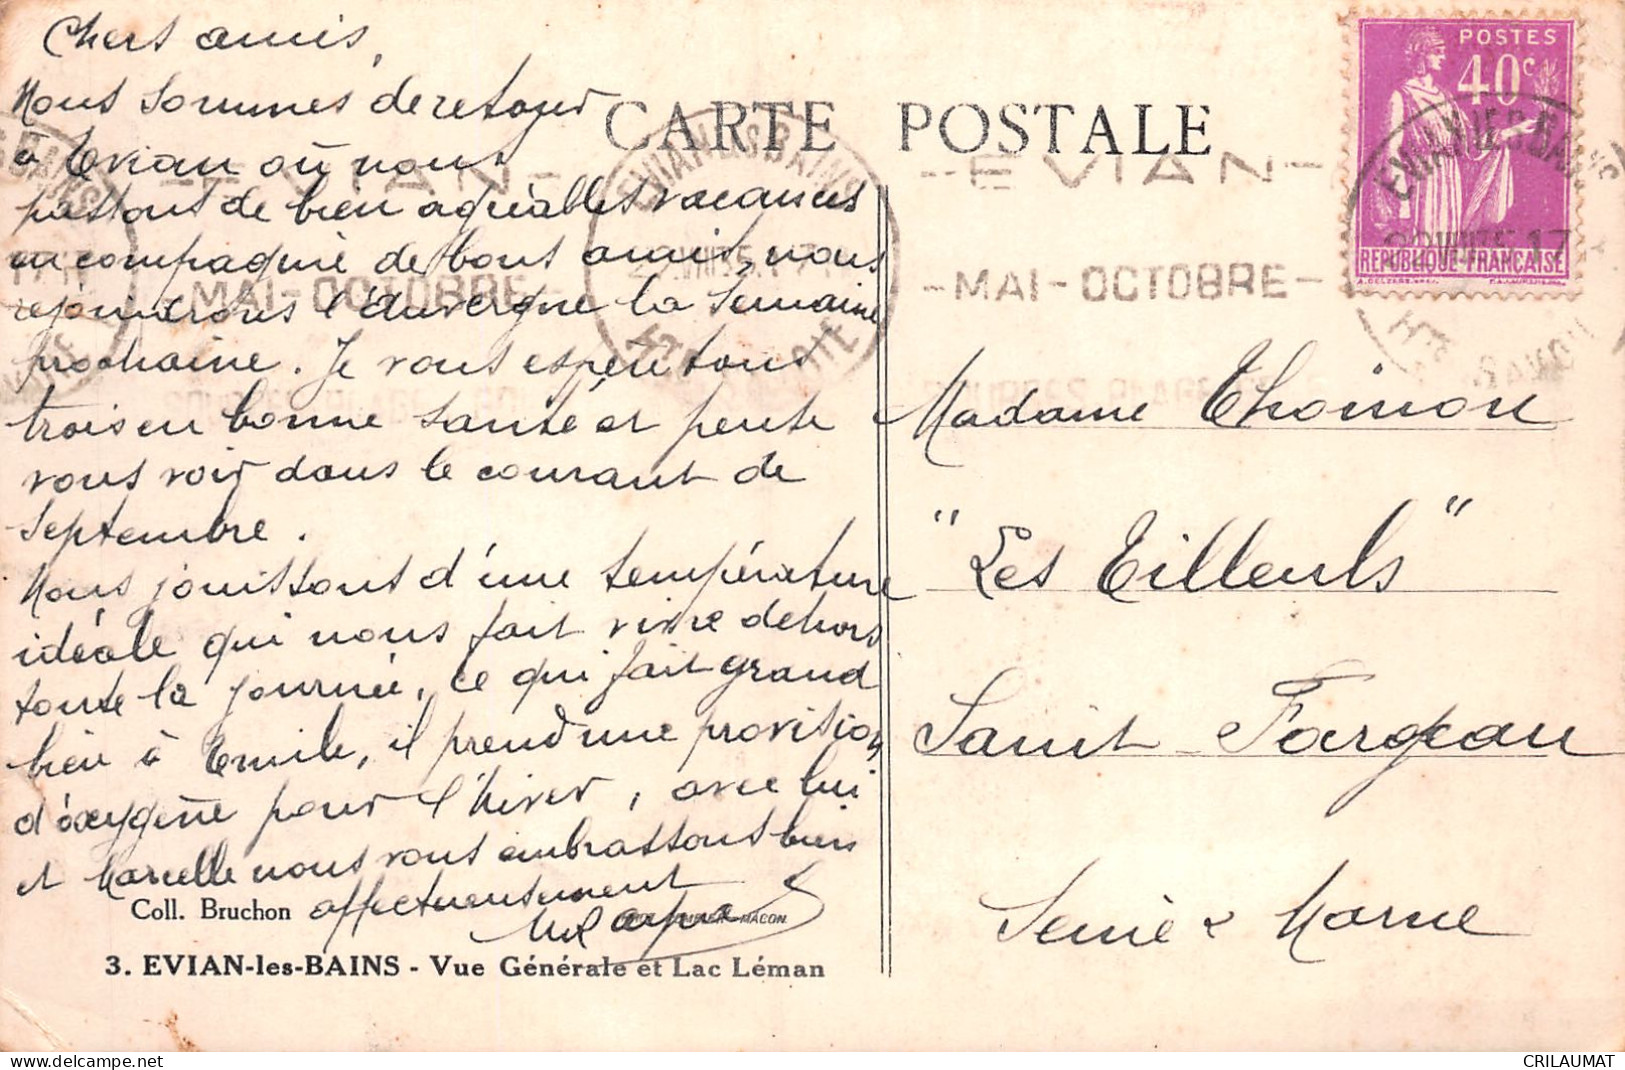 Chers amis,
Nous sommes de retour
à Evian où nous
passons de bien agréables vacances
en compagnie de bons amis, nous
rejoindrons l'Auvergne la Semaine
prochaine. Je vous espère tous
trois en bonne santé et pense
vous voir dans le courant de
Septembre.
Nous jouissons d'une température
idéale qui nous fait vivre dehors
toute la journée, ce qui fait grand
bien à Emile, il prend une provision
d'oxygène pour l'hiver, avec lui
et Marcelle nous vous embrassons bien
affectueusement
Coll. Bruchon
MACON
3. EVIAN-les-BAINS - Vue Générale et Lac Léman
CARTE POSTALE
- EVIAN -
- MAI - OCTOBRE -
EVIAN LES BAINS
HTE SAVOIE
POSTES
40c
REPUBLIQUE FRANÇAISE
Madame Thoinon
"Les Tilleuls"
Saint Fargeau
Seine & Marne
delcampe.net
CRILAUMAT